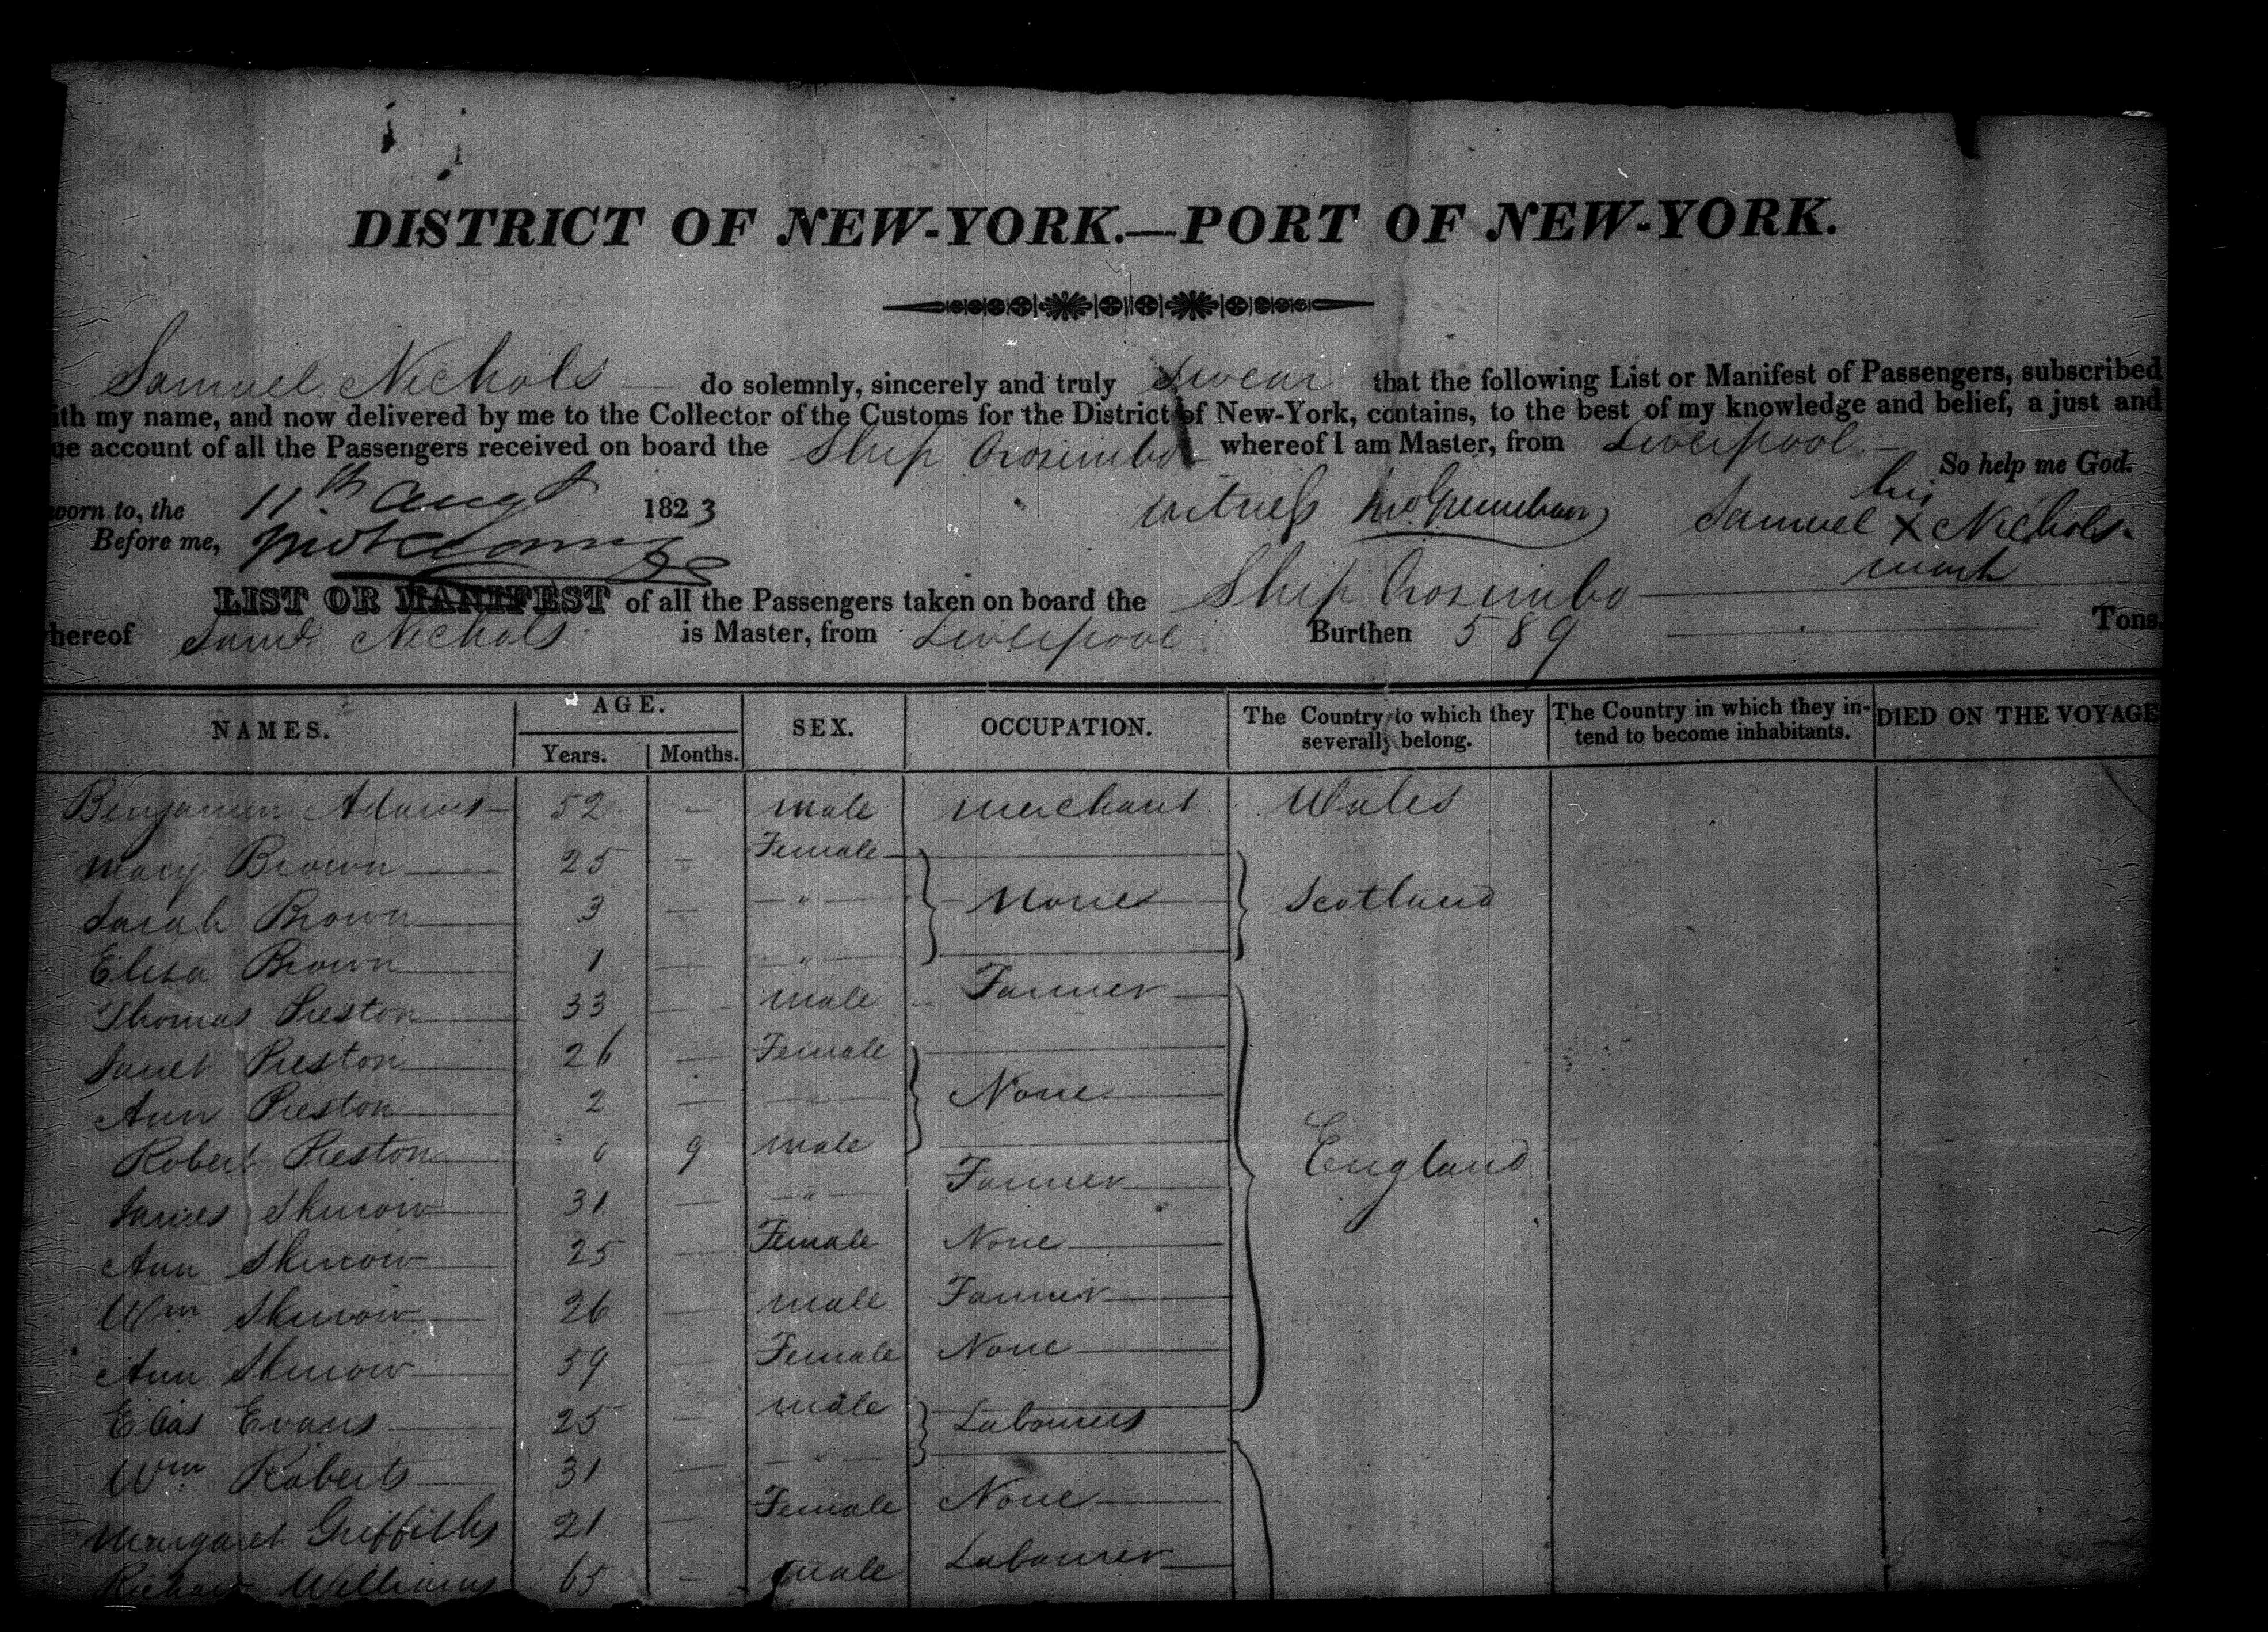 DISTRICT OF NEW-YORK.—PORT OF NEW-YORK.
Samuel Nichols do solemnly, sincerely and truly swear that the following List or Manifest of Passengers, subscribed
ith my name, and now delivered by me to the Collector of the Customs for the District of New-York, contains, to the best of my knowledge and belief, a just and
ue account of all the Passengers received on board the Ship Orozimbo whereof I am Master, from Liverpool
So help me God.
worn to, the 11th Augt 1823 witness his
Before me, Samuel X Nichols.
mark
LIST OR MANIFEST of all the Passengers taken on board the Ship Orozimbo
hereof Saml Nichols is Master, from Liverpool Burthen 589 Tons.
NAMES. AGE. SEX. OCCUPATION. The Country to which they severally belong. The Country in which they intend to become inhabitants. DIED ON THE VOYAGE
Years. Months.
Benjamin Adams 52 — male merchant Wales
Macy Brown 25 — Female
Sarah Brown 3 — " None Scotland
Eliza Brown 1 — "
Thomas Preston 33 — male Farmer
Janet Preston 26 — Female
Ann Preston 2 — " None
Robert Preston 0 9 male England
James Skurow 31 — " Farmer
Ann Skurow 25 — Female None
Wm Skurow 26 — male Farmer
Ann Skurow 59 — Female None
Elias Evans 25 — male Labourers
Wm Roberts 31 — "
Margaret Griffiths 21 — Female None
Richard Williams 65 — male Labourer